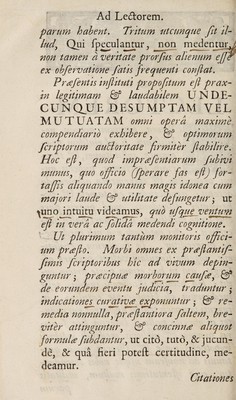 Ad Lectorem.
parum habent. Tritum utcunque sit il-
lud, Qui speculantur, non medentur,
non tamen à veritate prorsus alienum esse
ex observatione satis frequenti constat.
Præsentis instituti propositum est prax-
in legitimam & laudabilem UNDE-
CUNQUE DESUMPTAM VEL
MUTUATAM omni operâ maximè
compendiariò exhibere, & optimorum
scriptorum auctoritate firmitèr stabilire.
Hoc est, quod impræsentiarum subivi
munus, quo officio (sperare fas est) for-
tassis aliquando manus magis idonea cum
majori laude & utilitate defungetur; ut
uno intuitu videamus, quò usque ventum
est in verâ ac solidâ medendi cognitione.
Ut plurimum tantùm monitoris offici-
um præsto. Morbi omnes ex præstantis-
simis scriptoribus hîc ad vivum depin-
guntur; præcipuæ morborum causæ, &
de eorundem eventu judicia, traduntur;
indicationes curativæ exponuntur; & re-
media nonnulla, præstantiora saltem, bre-
vitèr attinguntur, & concinnæ aliquot
formulæ subdantur, ut citò, tutò, & jucun-
dè, & quâ fieri potest certitudine, me-
deamur.
Citationes